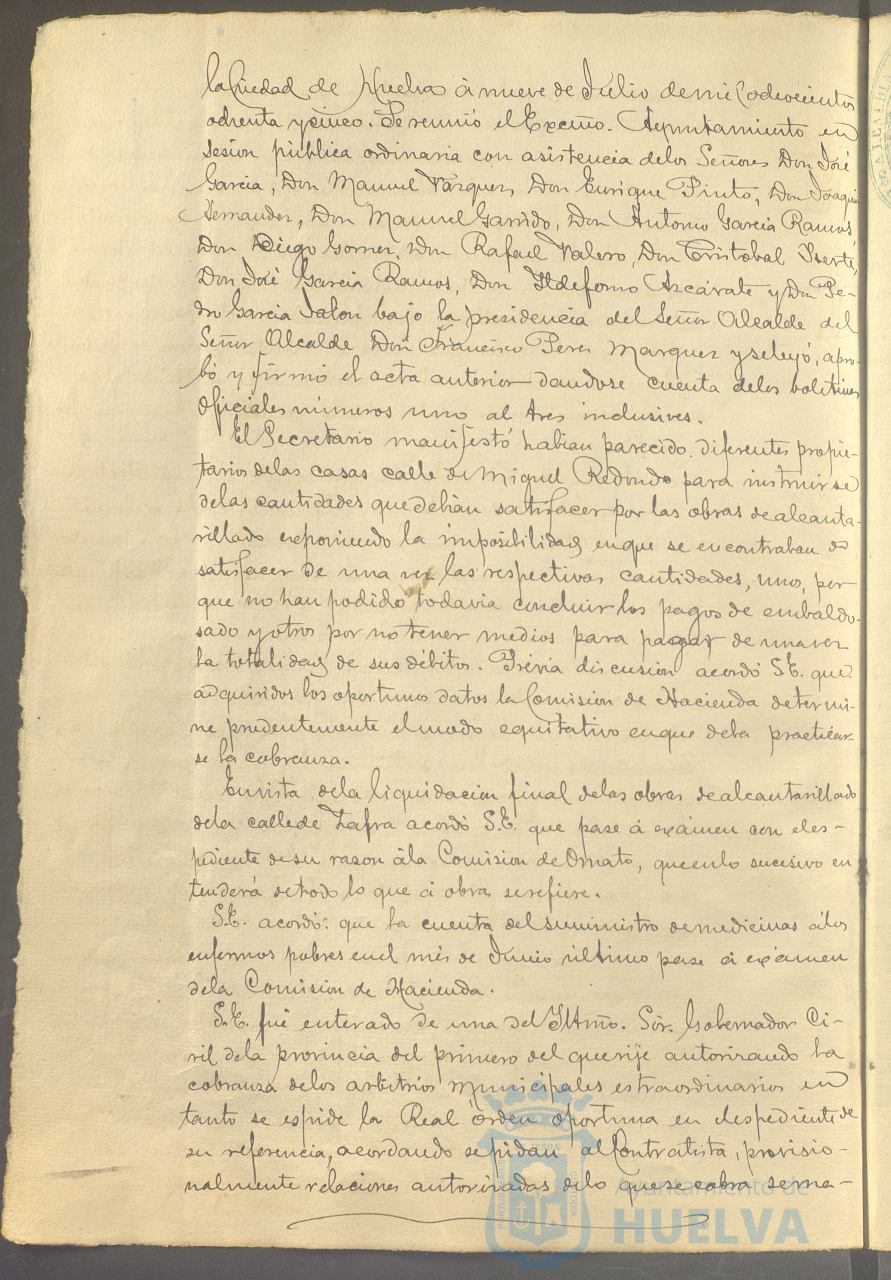 la Ciudad de Huelva á nueve de Julio de mil ochocientos
ochenta y cinco. Se reunió el Excmo. Ayuntamiento en
sesion pública ordinaria con asistencia de los Señores Don José
Garcia, Don Manuel Vazquez, Don Enrique Pinto, Don Joaquin
Hernandez, Don Manuel Garrido, Don Antonio Garcia Ramos,
Don Diego Gomez, Don Rafael Valero, Don Cristobal
Don José Garcia Ramos, Don Ildefonso Azcárate y Don Pe-
dro Garcia Jalon bajo la presidencia del Señor Alcalde del
Señor Alcalde Don Francisco Perez Marquez y se leyó, apro-
bó y firmó el acta anterior dandose cuenta de los boletines
oficiales números uno al tres inclusives.
El Secretario manifestó habian parecido diferentes propie-
tarios de las casas calle de Miguel Redondo para instruirse
de las cantidades que debian satisfacer por las obras de alcanta-
rillado esponiendo la imposibilidad en que se encontraban de
satisfacer de una vez las respectivas cantidades, unos, por
que no han podido todavia concluir los pagos de embaldo-
sado y otros por no tener medios para pagar de una vez
la totalidad de sus débitos. Prévia discusion acordó S.E. que
adquiridos los oportunos datos la Comision de Hacienda determi-
ne prudentemente el modo equitativo en que deba practicar-
se la cobranza.
En vista de la liquidacion final de las obras de alcantarillado
de la calle de Zafra acordó S.E. que pase á exámen con el es-
pediente de su razon á la Comision de Ornato, que en lo sucesivo en
tenderá de todo lo que á obras se refiere.
S.E. acordó: que la cuenta del suministro de medicinas á los
enfermos pobres en el més de Junio último pase á exámen
de la Comision de Hacienda.
S.E. fué enterado de una del Iltmo. Sór. Gobernador Ci-
vil de la provincia del primero del que rije autorizando la
cobranza de los arbitrios municipales estraordinarios en
tanto se espide la Real órden oportuna en el espediente de
su referencia, acordando se pidan al Contratista, provisio-
nalmente relaciones autorizadas de lo que se cobra sema-
Ayuntamiento de
HUELVA